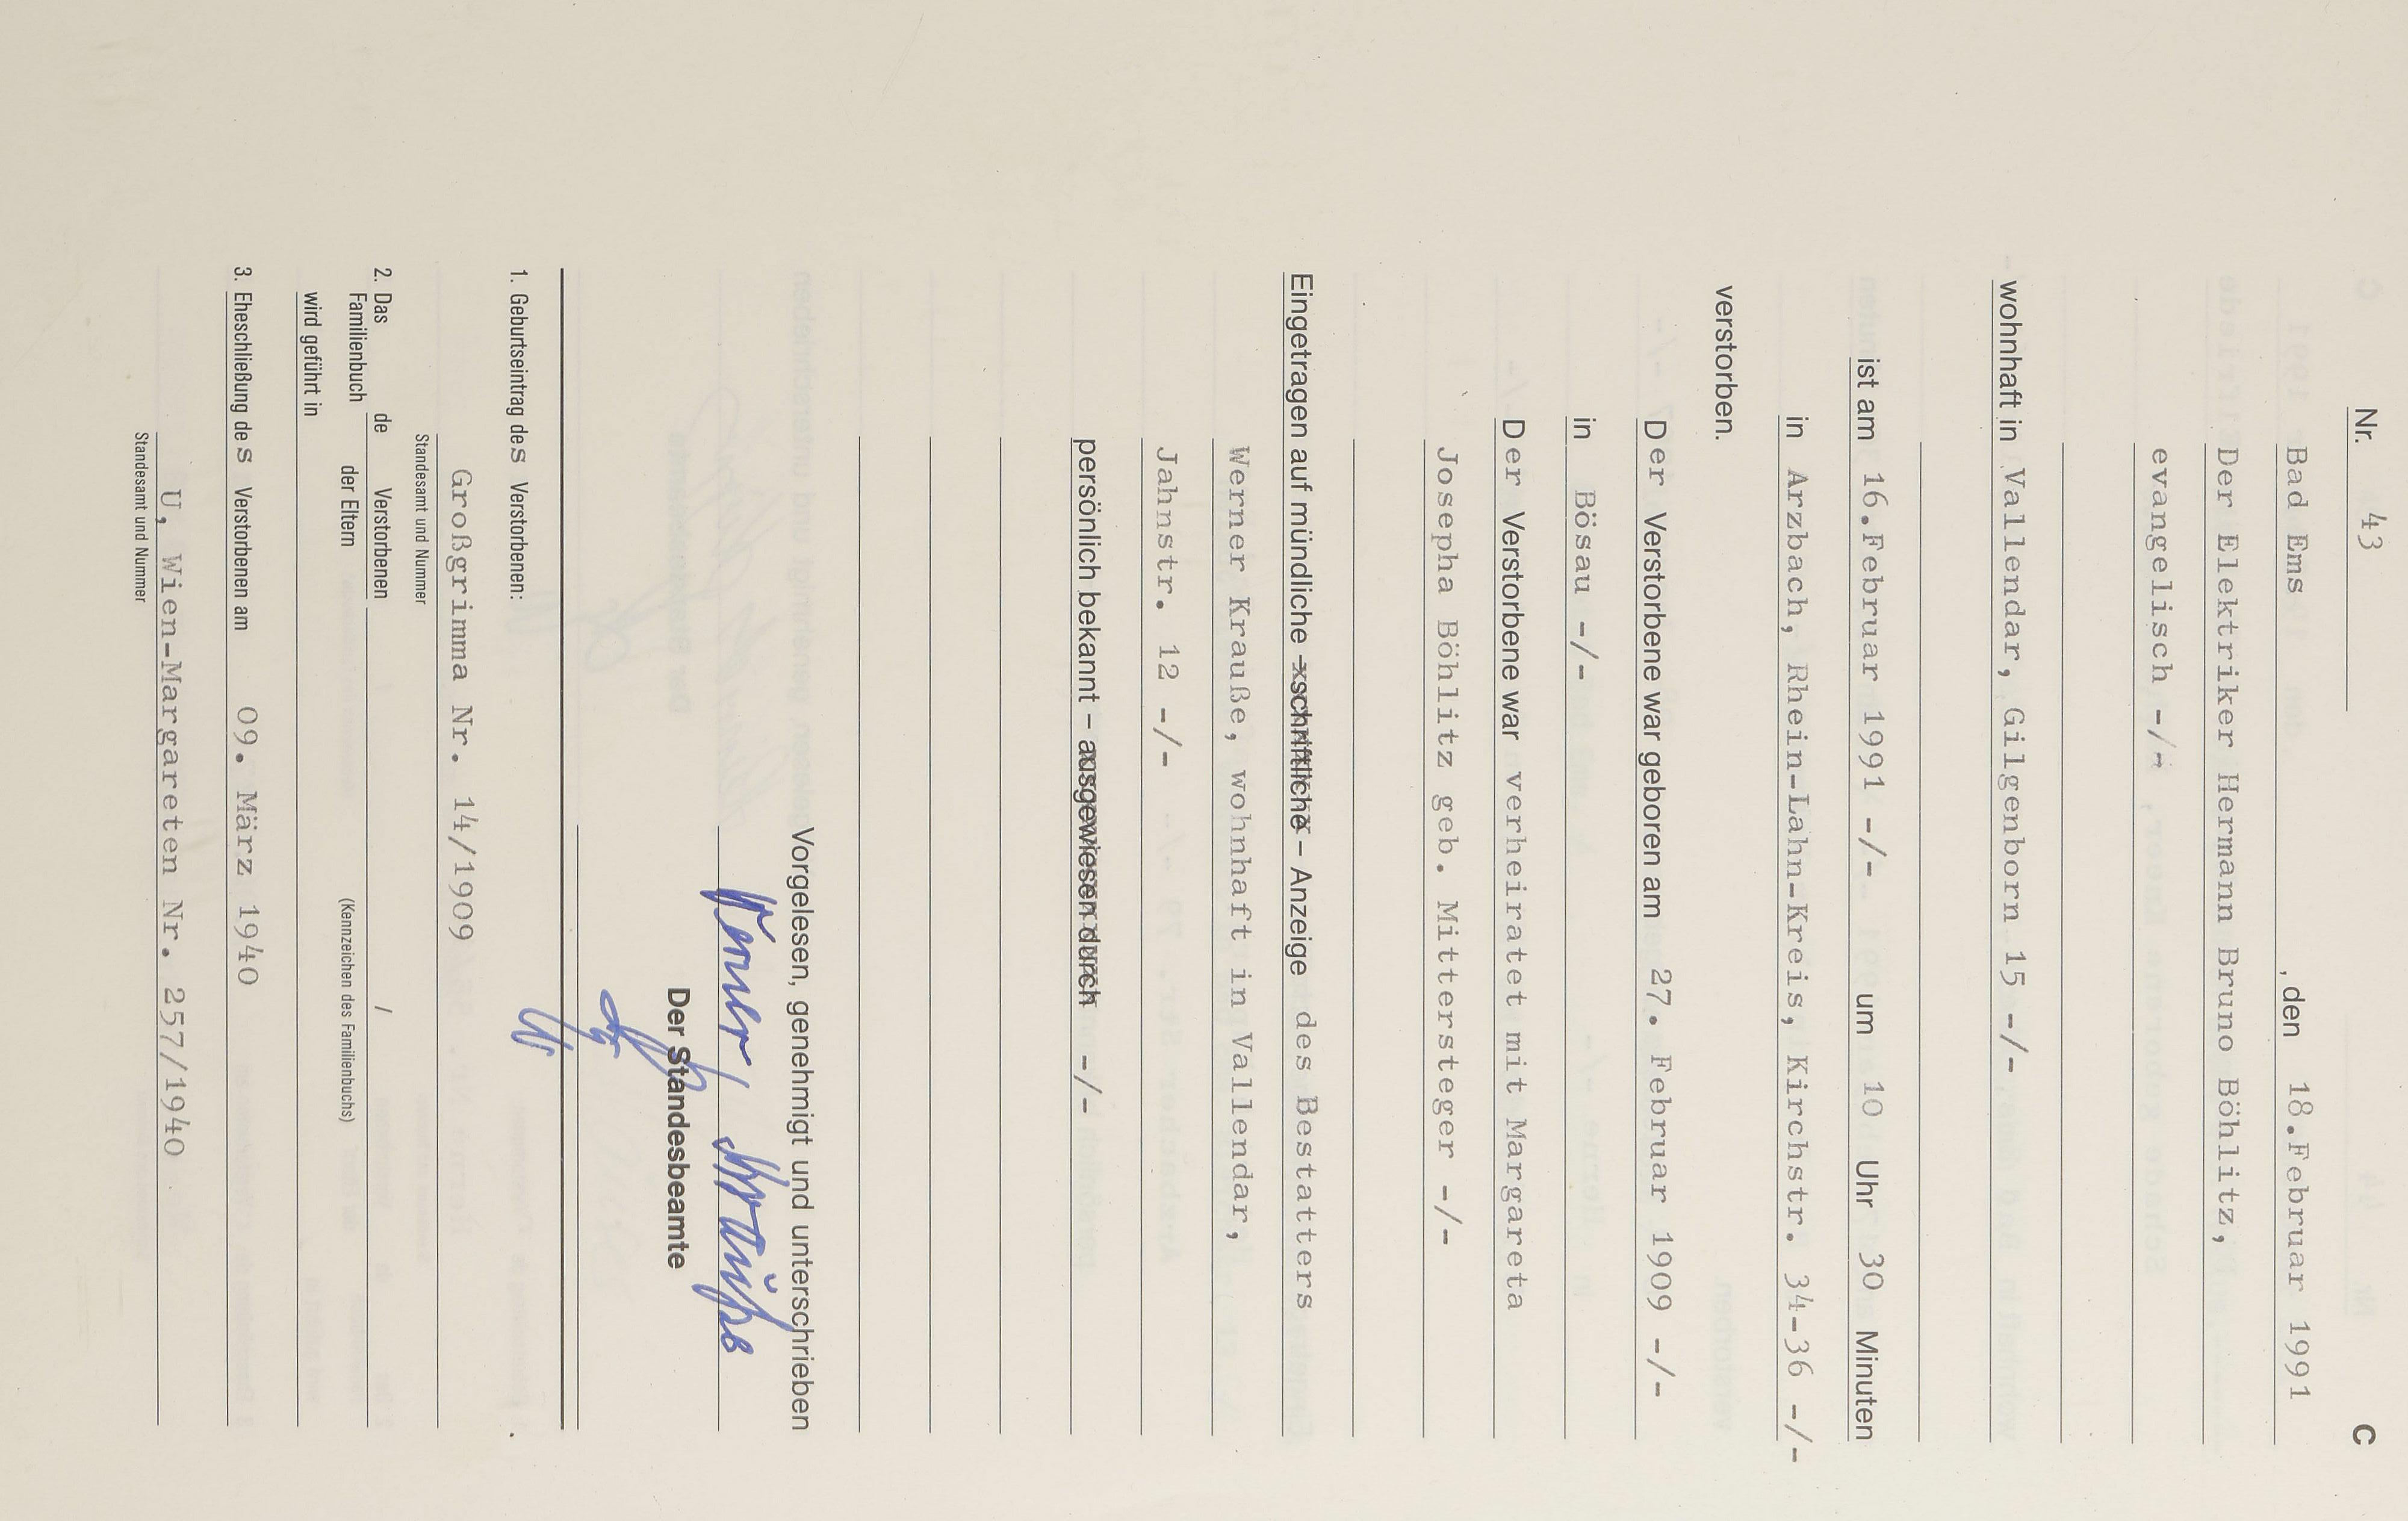 C
Nr. 43
Bad Ems , den 18.Februar 1991
Der Elektriker Hermann Bruno Böhlitz,
evangelisch -/-
wohnhaft in Vallendar, Gilgenborn 15 -/-
ist am 16.Februar 1991 -/- um 10 Uhr 30 Minuten
in Arzbach, Rhein-Lahn-Kreis, Kirchstr. 34-36 -/-
verstorben.
Der Verstorbene war geboren am 27. Februar 1909 -/-
in Bösau -/-
Der Verstorbene war verheiratet mit Margareta
Josepha Böhlitz geb. Mittersteger -/-
Eingetragen auf mündliche – schriftliche – Anzeige des Bestatters
Werner Krauße, wohnhaft in Vallendar,
Jahnstr. 12 -/-
persönlich bekannt – ausgewiesen durch -/-
Vorgelesen, genehmigt und unterschrieben
Werner Krauße
Der Standesbeamte
1. Geburtseintrag des Verstorbenen:
Großgrimma Nr. 14/1909
Standesamt und Nummer
2. Das Familienbuch de Verstorbenen /
der Eltern (Kennzeichen des Familienbuchs)
wird geführt in
3. Eheschließung des Verstorbenen am 09. März 1940
U, Wien-Margareten Nr. 257/1940
Standesamt und Nummer